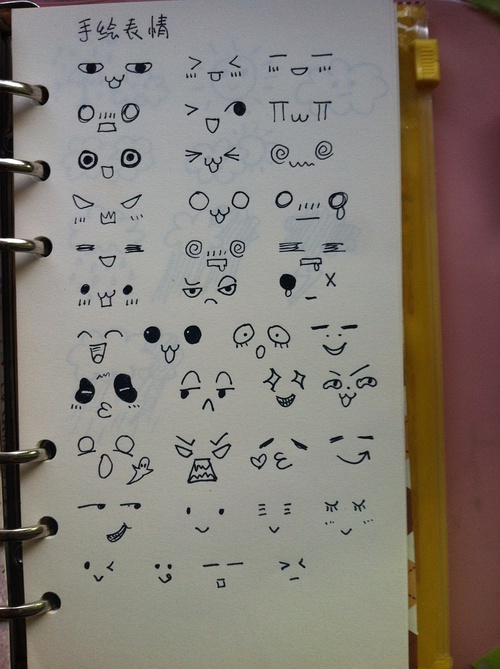 手绘表情